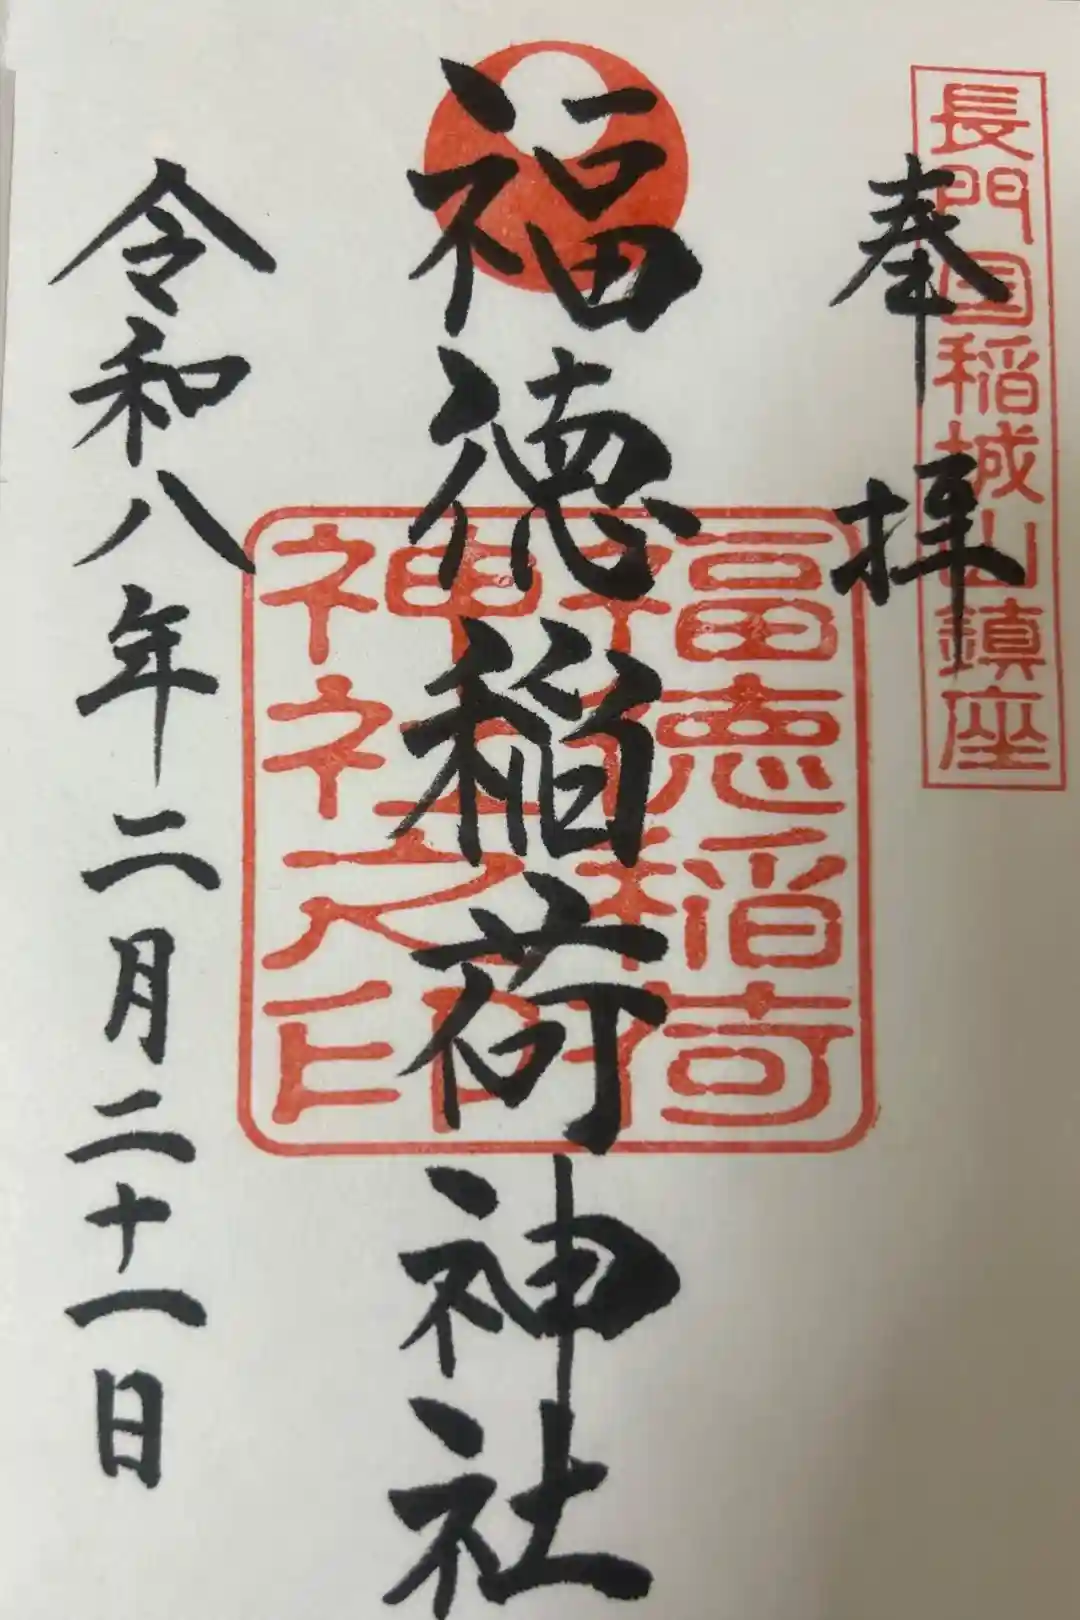 長門国稲城山鎮座
奉拝
福徳稲荷神社
福徳稲荷
神社之印
令和八年二月二十一日